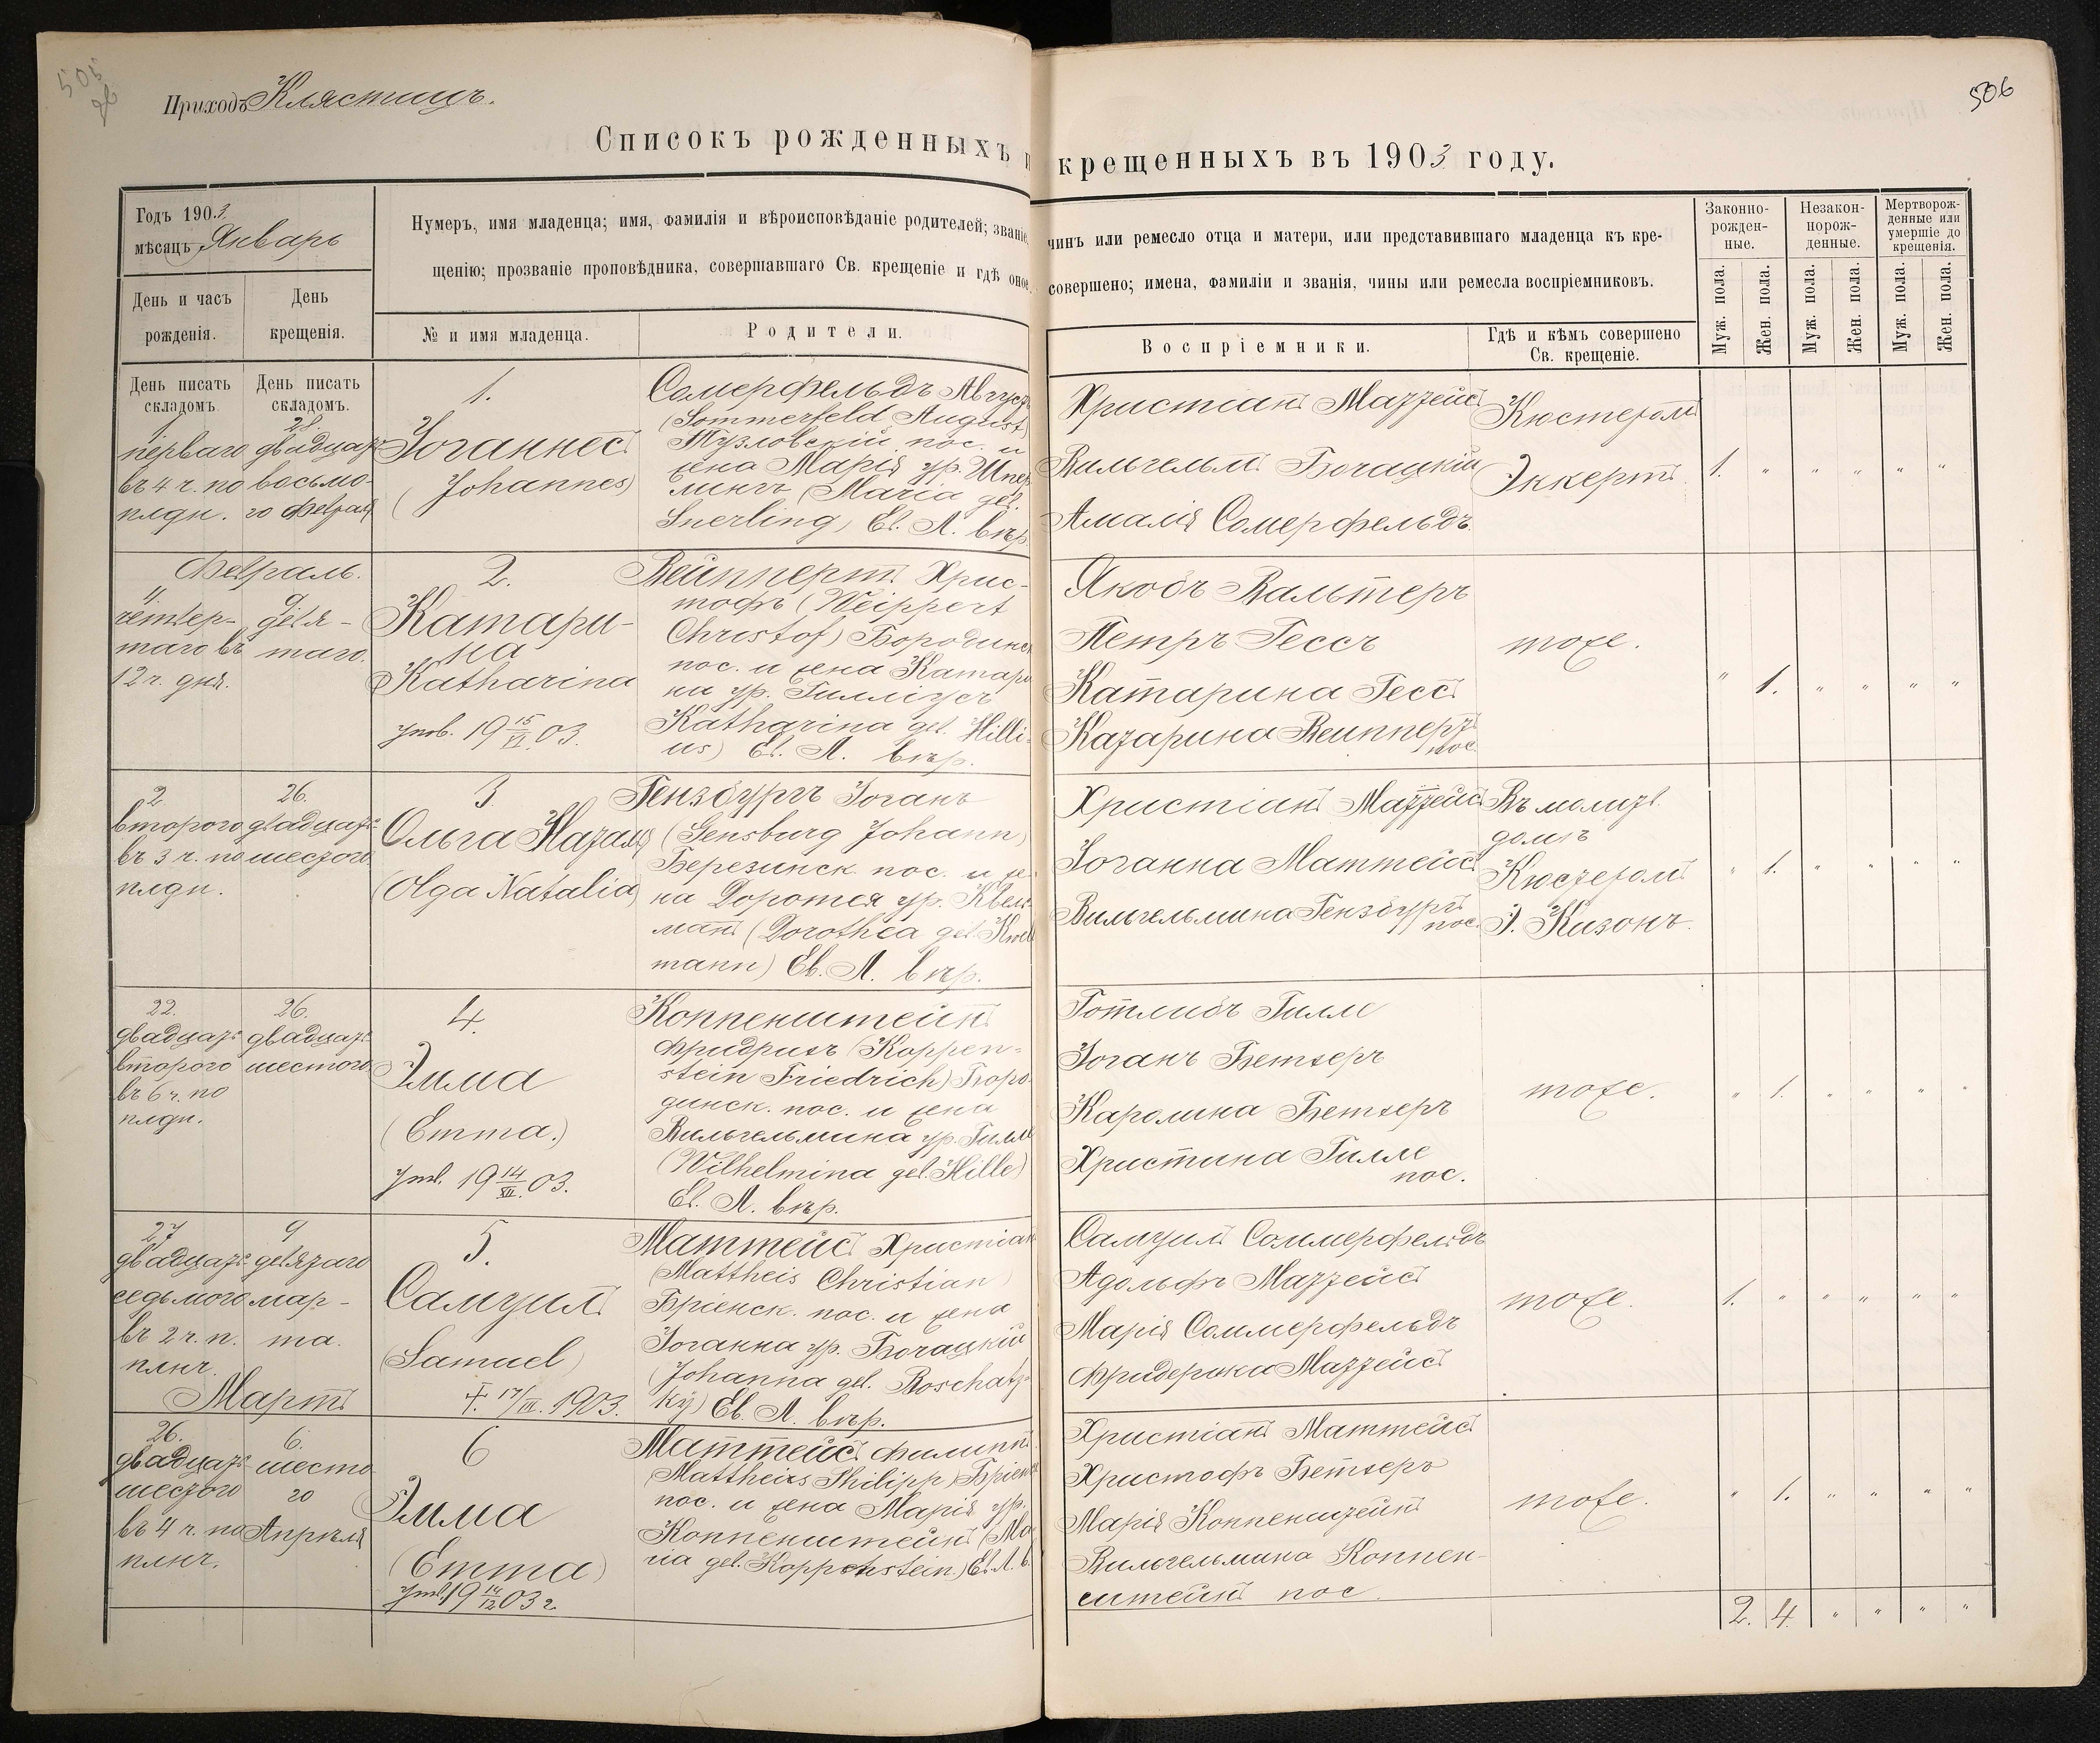 505
об
506
Приходъ Клястицъ.
Списокъ рожденныхъ и крещенныхъ въ 1903 году.
Годъ 1903
мѣсяцъ Январь
Нумеръ, имя младенца; имя, фамилія и вѣроисповѣданіе родителей; званіе,
чинъ или ремесло отца и матери, или представившаго младенца къ кре-
щенію; прозваніе проповѣдника, совершавшаго Св. крещеніе и гдѣ оное
совершено; имена, фамиліи и званія, чины или ремесла воспріемниковъ.
Законно-
рожден-
ные.
Незакон-
норож-
денные.
Мертворож-
денные или
умершіе до
крещенія.
День и часъ
рожденія.
День
крещенія.
№ и имя младенца.
Родители.
Воспріемники.
Гдѣ и кѣмъ совершено
Св. крещеніе.
Муж. пола.
Жен. пола.
Муж. пола.
Жен. пола.
Муж. пола.
Жен. пола.
День писать
складомъ.
День писать
складомъ.
1.
перваго
въ 4 ч. по
плдн.
28.
двадцать
восьмо-
го февраля
1.
Іоганнесъ
(Johannes)
Сомерфельдъ Августъ
(Sommerfeld August)
Тузловскій пос. и
жена Марія ур. Шпер
лингъ (Maria geb.
Sperling) Ев. Л. вѣр.
Христіанъ Маттейсъ
Вильгельмъ Бочацкій
Амалія Сомерфельдъ
Кюстеромъ
Эккертъ.
1. " " " " "
Февраль.
4.
четвер-
таго въ
12 ч. дня.
9.
девя-
таго.
2.
Катари-
на
(Katharina
умв. 19 15/VI 03.
Вейппертъ Хрис-
тофъ (Weippert
Christof) Бородинск
пос. и жена Катари
на ур. Гилліусъ
Katharina geb. Hilli-
us) Ев. Л. вѣр.
Якобъ Вальтеръ
Петръ Гессъ
Катарина Гессъ
Катарина Веиппертъ
пос.
тоже.
" 1. " " " "
2
второго
въ 3 ч. по
плдн.
26.
двадцать
шестого
3
Ольга Наталія
(Olga Natalia)
Гензбургъ Іоганъ
(Gensburg Johann)
Березинск. пос. и же-
на Доротея ур. Квель
манъ (Dorothea geb. Kwell
mann) Ев. Л. вѣр.
Христіанъ Маттейсъ
Іоганна Маттейсъ
Вильгельмина Гензбургъ
пос.
Въ молитв.
домѣ
Кюстеромъ
Э. Кизонъ.
" 1. " " " "
22.
двадцать
второго
въ 6 ч. по
плдн.
26.
двадцать
шестого
4.
Эмма
(Emma.)
Умв. 19 14/XII 03.
Коппенштейнъ
Фридрихъ (Koppen-
stein Friedrich) Боро-
динск. пос. и жена
Вильгельмина ур. Гилле
(Wilhelmina geb. Hille)
Ев. Л. вѣр.
Готлибъ Гилле
Іоганъ Бетхеръ
Каролина Бетхеръ
Христина Гилле
пос.
тоже.
" 1. " " " "
27
двадцать
седьмого
въ 2 ч. п.
плнч.
9
девятаго
мар-
та.
5.
Самуилъ
(Samuel)
†. 17/III. 1903.
Маттейсъ Христіанъ
(Mattheis Christian)
Бріенск. пос. и жена
Іоганна ур. Бочацкій
(Johanna geb. Boschatz-
ky) Ев. Л. вѣр.
Самуилъ Соммерфельдъ
Адольфъ Маттейсъ
Марія Соммерфельдъ
Фридерика Маттейсъ
тоже.
1. " " " " "
Мартъ
26.
двадцать
шестого
въ 4 ч. по
плнч.
6.
шесто
го
Апрѣля
6
Эмма
(Emma)
Умв. 19 14/12 03 г.
Маттейсъ Филиппъ
(Mattheis Philipp) Бріенск
пос. и жена Марія ур.
Коппенштейнъ (Ma
ria geb. Koppenstein.) Ев. Л. в.
Христіанъ Маттейсъ
Христофъ Бетхеръ
Марія Коппенштейнъ
Вильгельмина Коппен-
штейнъ пос.
тоже.
" 1. " " " "
2. 4. " " " "